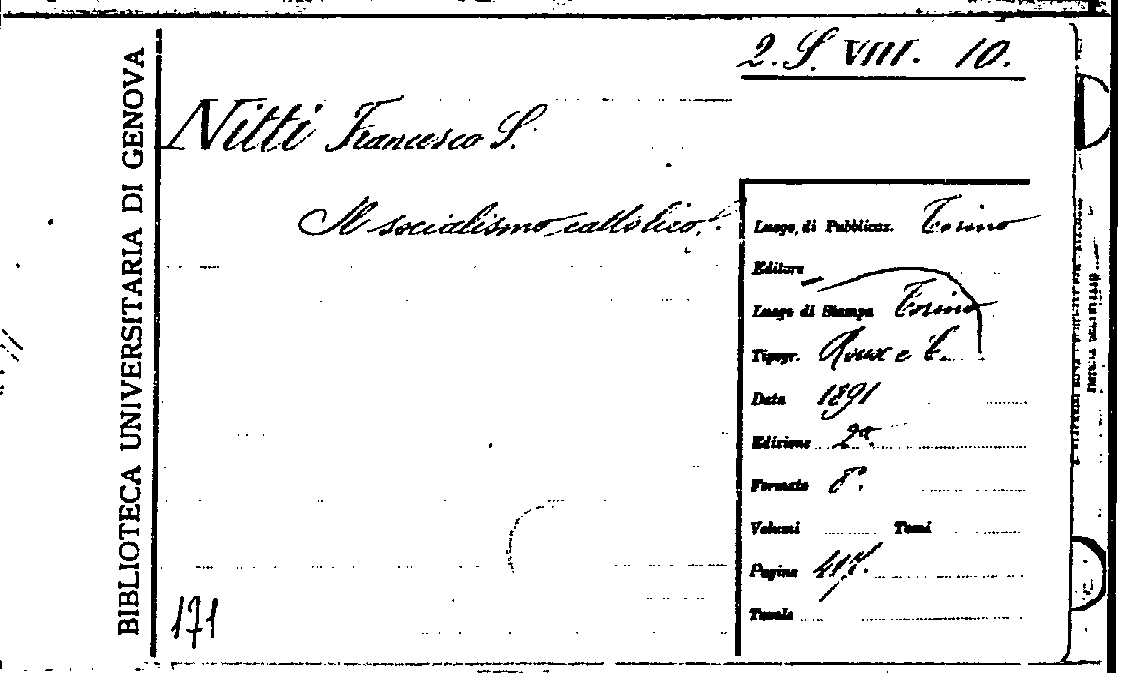 BIBLIOTECA UNIVERSITARIA DI GENOVA
2. S. VIII. 10.
Nitti Francesco S.
Il socialismo cattolico.
Luogo di Pubblicaz. Torino
Editore
Luogo di Stampa Torino
Tipogr. Roux e C.
Data 1891
Edizione 2a.
Formato 8°.
Volumi Tomi
Pagine 417.
Tavole
171